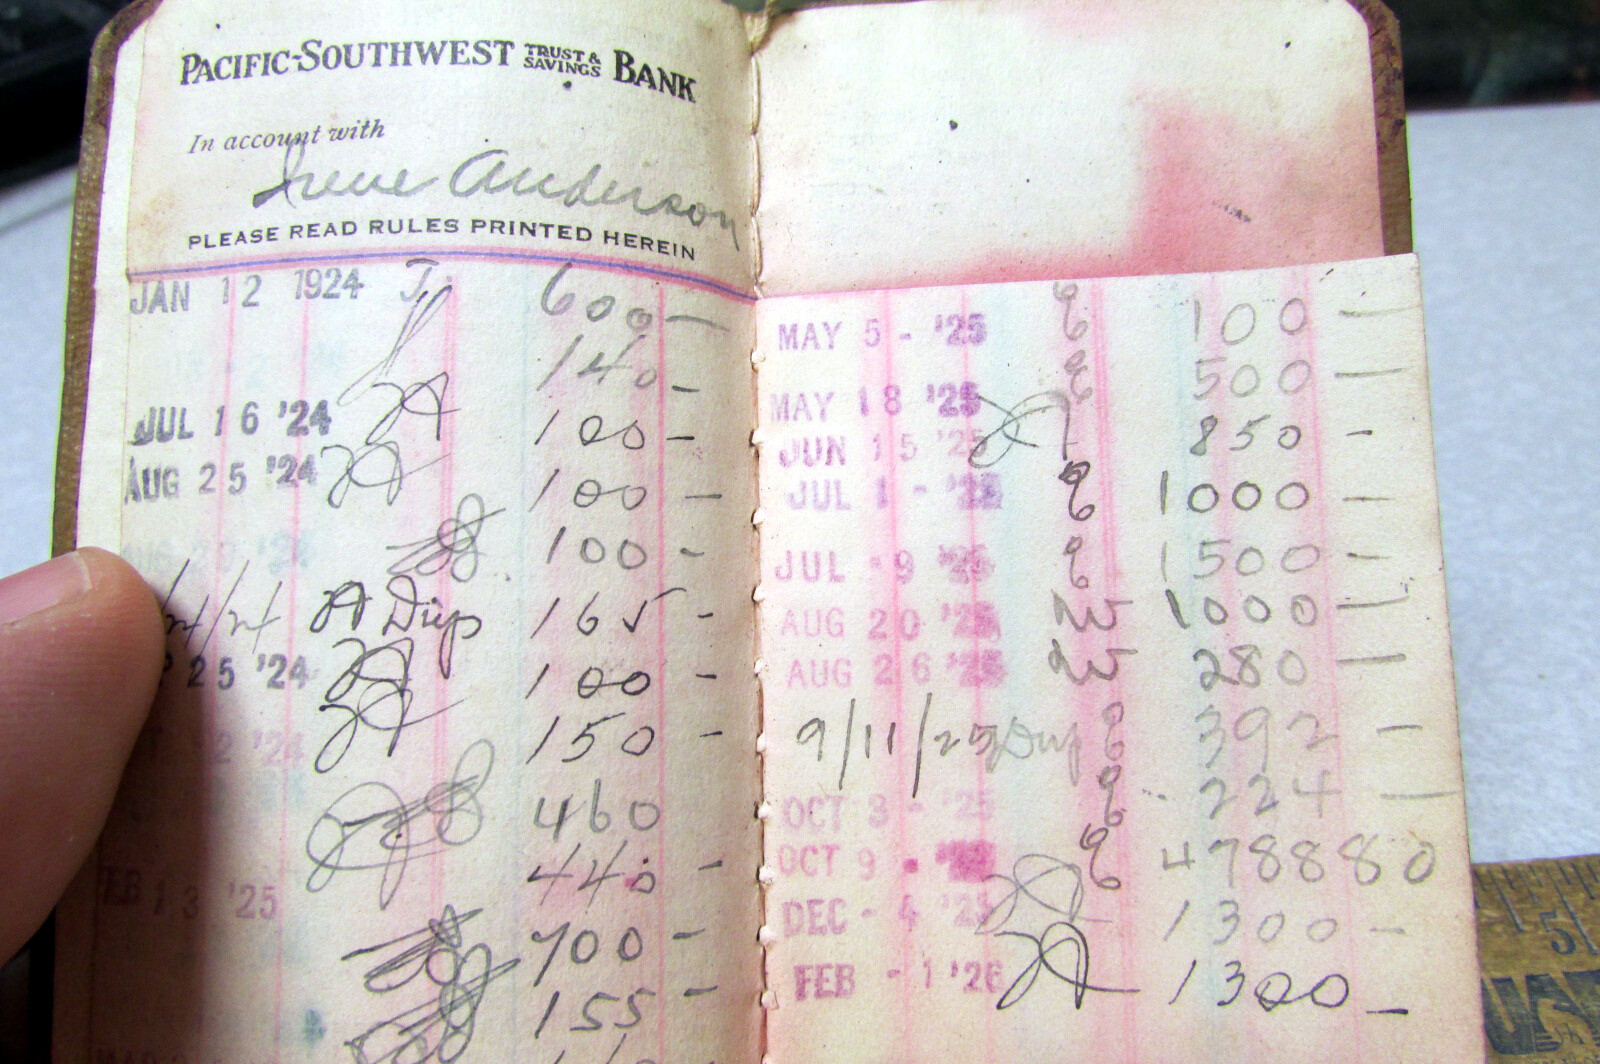 PACIFIC-SOUTHWEST TRUST & SAVINGS BANK
In account with
Irene Anderson
PLEASE READ RULES PRINTED HEREIN
JAN 12 1924 J. 600 —
140 —
JUL 16 '24 100 —
AUG 25 '24 100 —
100 —
165 —
25 '24 100 —
2 '24 150 —
460
440 —
FEB 13 '25
700 —
155 —
MAY 5 - '25 100 —
MAY 18 '25 500 —
JUN 15 '25 850 —
JUL 1 - '25 1000 —
JUL - 9 '25 1500 —
AUG 20 '25 1000 —
AUG 26 '25 280 —
9/11/25 Dup 392 —
OCT 3 - '25 224 —
OCT 9 478880
DEC - 4 '25 1300 —
FEB - 1 '26 1300 —
51